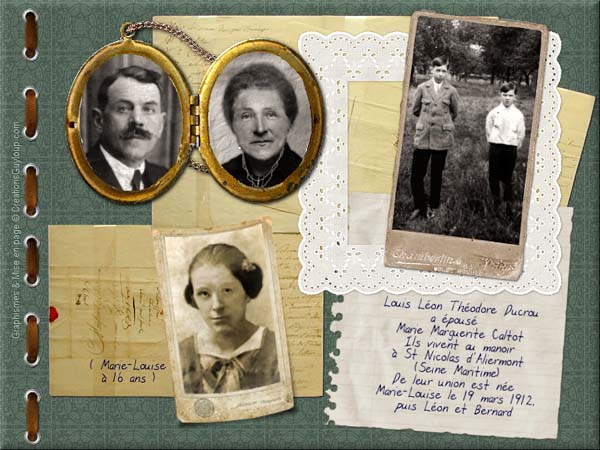 Graphismes & Mise en page © CreationsGuyloup.com
( Marie-Louise
à 16 ans )
Louis Léon Théodore Ducrou
a épousé
Marie Marguerite Caltot
Ils vivent au manoir
à St Nicolas d'Aliermont
(Seine Maritime)
De leur union est née
Marie-Louise le 19 mars 1912,
puis Léon et Bernard